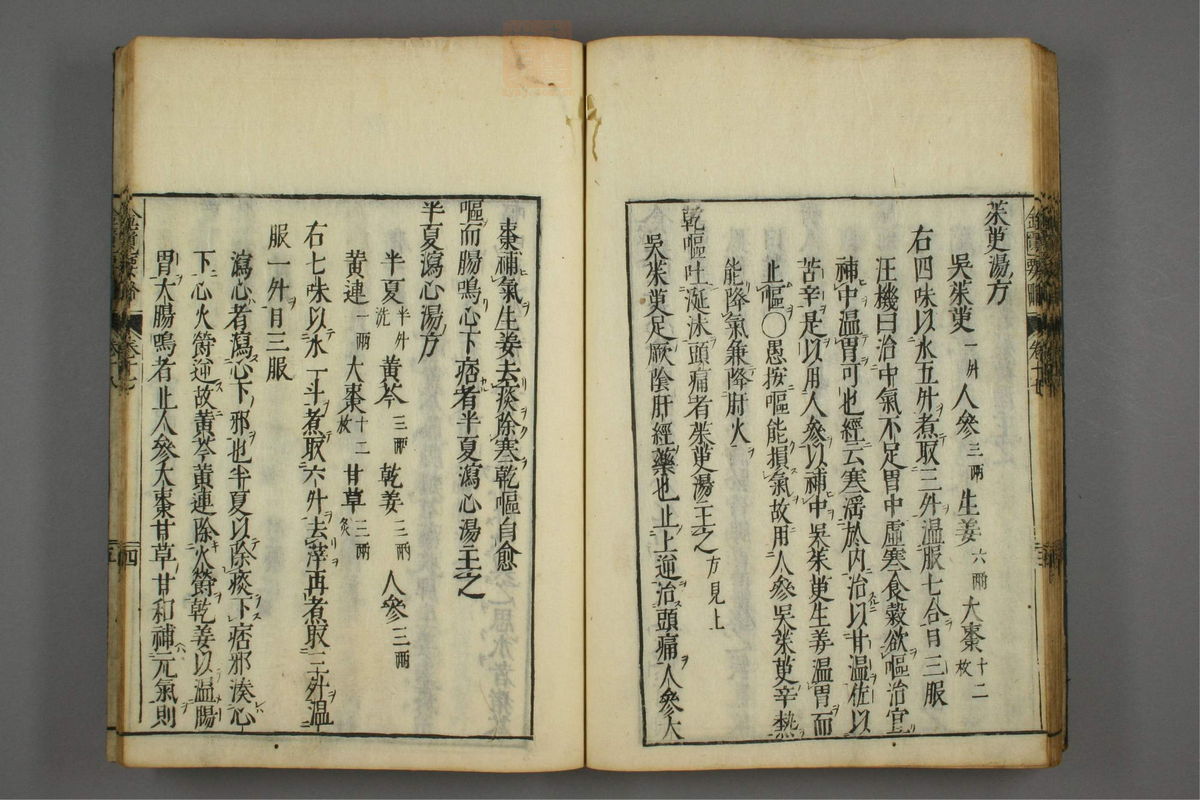 茱萸湯方
吳茱萸一升人參三兩生姜六兩大棗十二枚
右四味以水五升煮取三升温服七合日三服
汪機曰治中氣不足胃中虛寒食穀欲嘔治宜
補中温胃可也經云寒淫於內治以甘温佐以
苦辛是以用人參以補中吳茱萸生姜温胃而
止嘔〇愚按嘔能損氣故用人參吳茱萸辛熱
能降氣兼降肝火
乾嘔吐涎沫頭痛者茱萸湯主之方見上
吳茱萸足厥陰肝經藥也止上逆治頭痛人參大
棗補氣生姜去痰除寒乾嘔自愈
嘔而腸鳴心下痞者半夏瀉心湯主之
半夏瀉心湯方
半夏半升洗黃芩三兩乾姜三兩人參三兩
黃連一兩大棗十二枚甘草三兩炙
右七味以水一斗煮取六升去滓再煮取三升温
服一升日三服
瀉心者瀉心下邪也半夏以除痰下痞邪湊心
下心火鬱逆故黃芩黃連除火鬱乾姜以温腸
胃大腸鳴者止人參大棗甘草甘和補元氣則